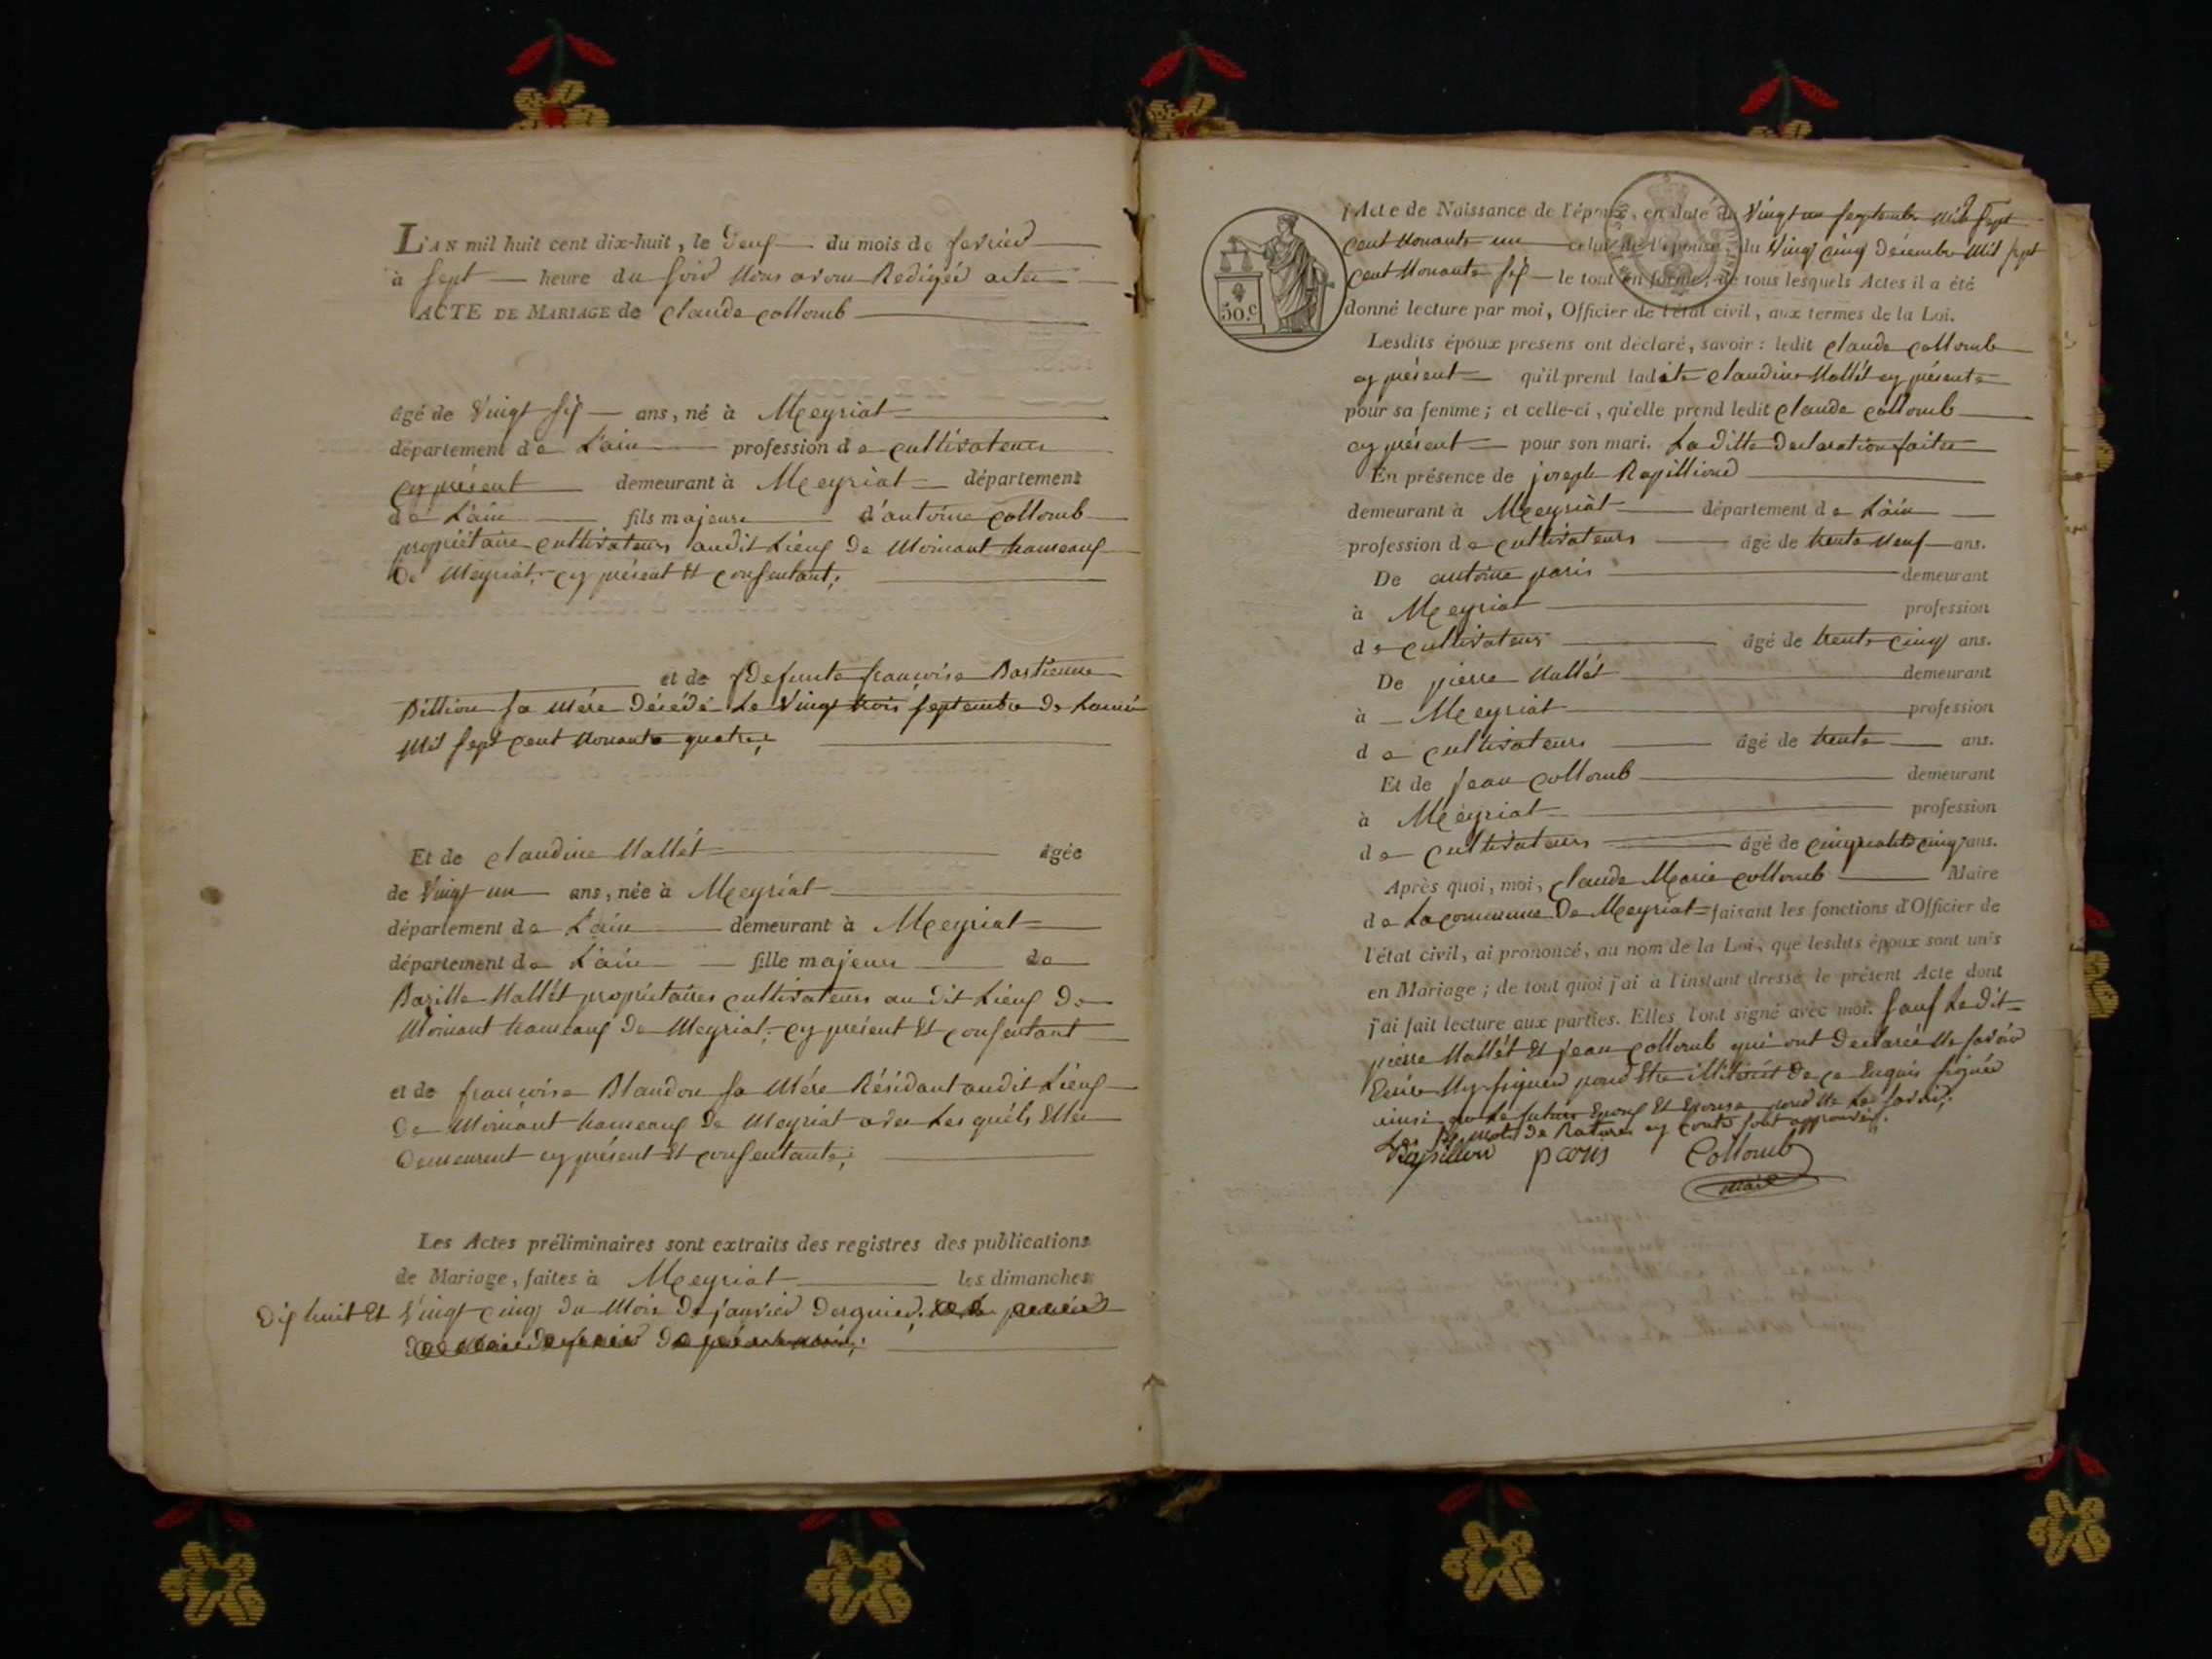 L'AN mil huit cent dix-huit, le deux du mois de fevrier
à sept heure du soir Nous avons Redigéé actes
ACTE DE MARIAGE de claude collomb
âgé de Vingt six ans, né à Meyriat
département de L'ain profession de cultivateur
cy présent demeurant à Meyriat département
de L'ain fils majeur d'antoine collomb
propriétaire cultivateur audit Lieux de Moinant hameaux
De Meyriat; cy présent Et consentant;
et de Defunte francoise Bastienne
Billion sa Mére décédé Le Vingt trois septembre de Lanné
Mil sept cent Nonante quatre;
Et de claudine Mallét âgée
de Vingt un ans, née à Meyriat
département de L'ain demeurant à Meyriat
département de L'ain fille majeure de
Bazille Mallét propriétaires cultivateurs au dit Lieux De
Moinant hameaux De Meyriat; cy présent Et consentant
et de francoise Blandon sa Mére Résidant audit Lieux
De Moinant hameaux De Meyriat avec Les quéls Elle
Demeurent cy présent Et consentante;
Les Actes préliminaires sont extraits des registres des publications
de Mariage, faites à Meyriat les dimanches
Dix huit Et Vingt cinq du Mois De janvier dergnier.
l'Acte de Naissance de l'époux, en date du Vingt un septembre Mil Sept
cent Nonante un celui de l'épouse, du Vingt cinq décembre Mil sept
cent Nonante six le tout en forme; de tous lesquels Actes il a été
donné lecture par moi, Officier de l'état civil, aux termes de la Loi.
50.c
Lesdits époux presens ont déclaré, savoir: ledit claude collomb
cy présent qu'il prend ladite claudine Mallét cy présente
pour sa femme; et celle-ci, qu'elle prend ledit claude collomb
cy présent pour son mari. La ditte Declaration faites
En présence de joseph Ragillioud
demeurant à Meyriat département de L'ain
profession de cultivateurs âgé de trente Neuf ans.
De antoine paris demeurant
à Meyriat profession
de cultivateurs âgé de trente cinq ans.
De pierre Mallét demeurant
à Meyriat profession
de cultivateurs âgé de trente ans.
Et de jean collomb demeurant
à Meyriat profession
de cultivateurs âgé de cinquante cinq ans.
Après quoi, moi, claude Marie collomb Maire
de La commune De Meyriat faisant les fonctions d'Officier de
l'état civil, ai prononcé, au nom de la Loi, que lesdits époux sont unis
en Mariage; de tout quoi j'ai à l'instant dressé le présent Acte dont
j'ai fait lecture aux parties. Elles l'ont signé avec moi. sauf Le dit
pierre Mallét Et jean collomb qui ont Declarée Ne savoir
Ecrire Ny signer pour Etre De ce Enquis
ainsi que Le futur Epoux Et Epouse pour Ne Le savoir;
Les mots De Ratures cy contre sont approuvéz.
paris Collomb
maire